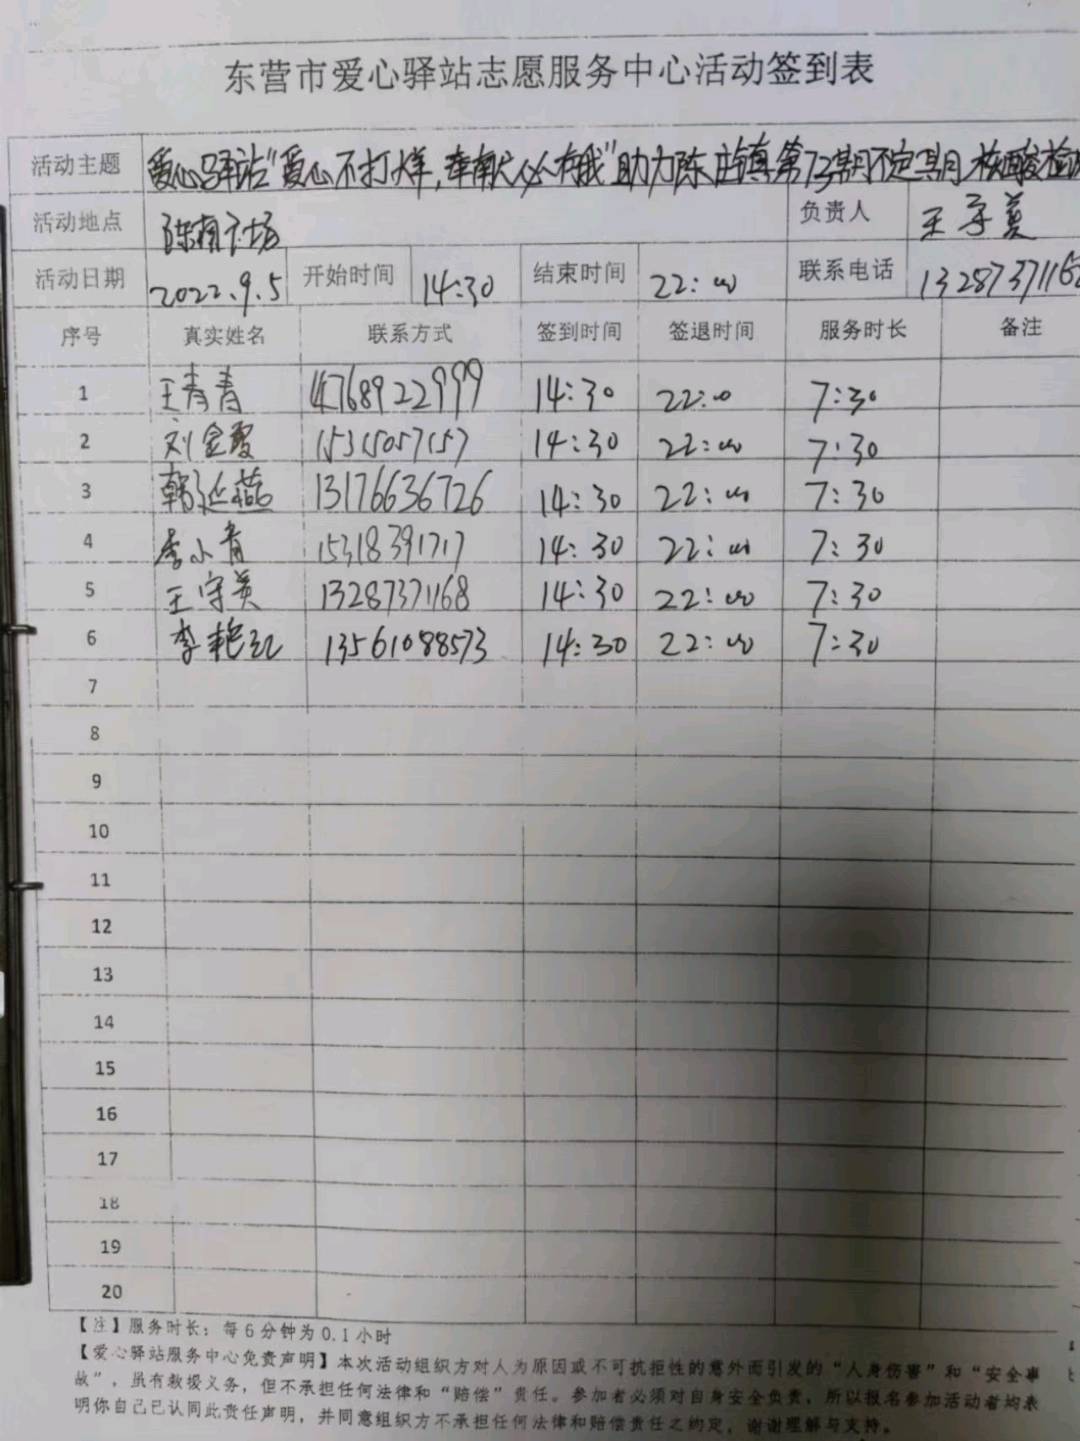 东营市爱心驿站志愿服务中心活动签到表
活动主题 爱心驿站"爱心不打烊,奉献心必有我"助力陈庄镇第73期不定期核酸检
活动地点 陈南广场 负责人 王守英
活动日期 2022.9.5 开始时间 14:30 结束时间 22:00 联系电话 1328737116
序号 真实姓名 联系方式 签到时间 签退时间 服务时长 备注
1 王青青 4768922999 14:30 22:00 7:30
2 刘金霞 15315057157 14:30 22:00 7:30
3 韩延燕 13176636726 14:30 22:00 7:30
4 李小青 15318391717 14:30 22:00 7:30
5 王守英 13287371168 14:30 22:00 7:30
6 李艳红 13561088573 14:30 22:00 7:30
7
8
9
10
11
12
13
14
15
16
17
18
19
20
【注】服务时长:每6分钟为0.1小时
【爱心驿站服务中心免责声明】本次活动组织方对人为原因或不可抗拒性的意外而引发的"人身伤害"和"安全事
故",虽有救援义务,但不承担任何法律和"赔偿"责任。参加者必须对自身安全负责,所以报名参加活动者均表
明你自己已认同此责任声明,并同意组织方不承担任何法律和赔偿责任之约定,谢谢理解与支持。